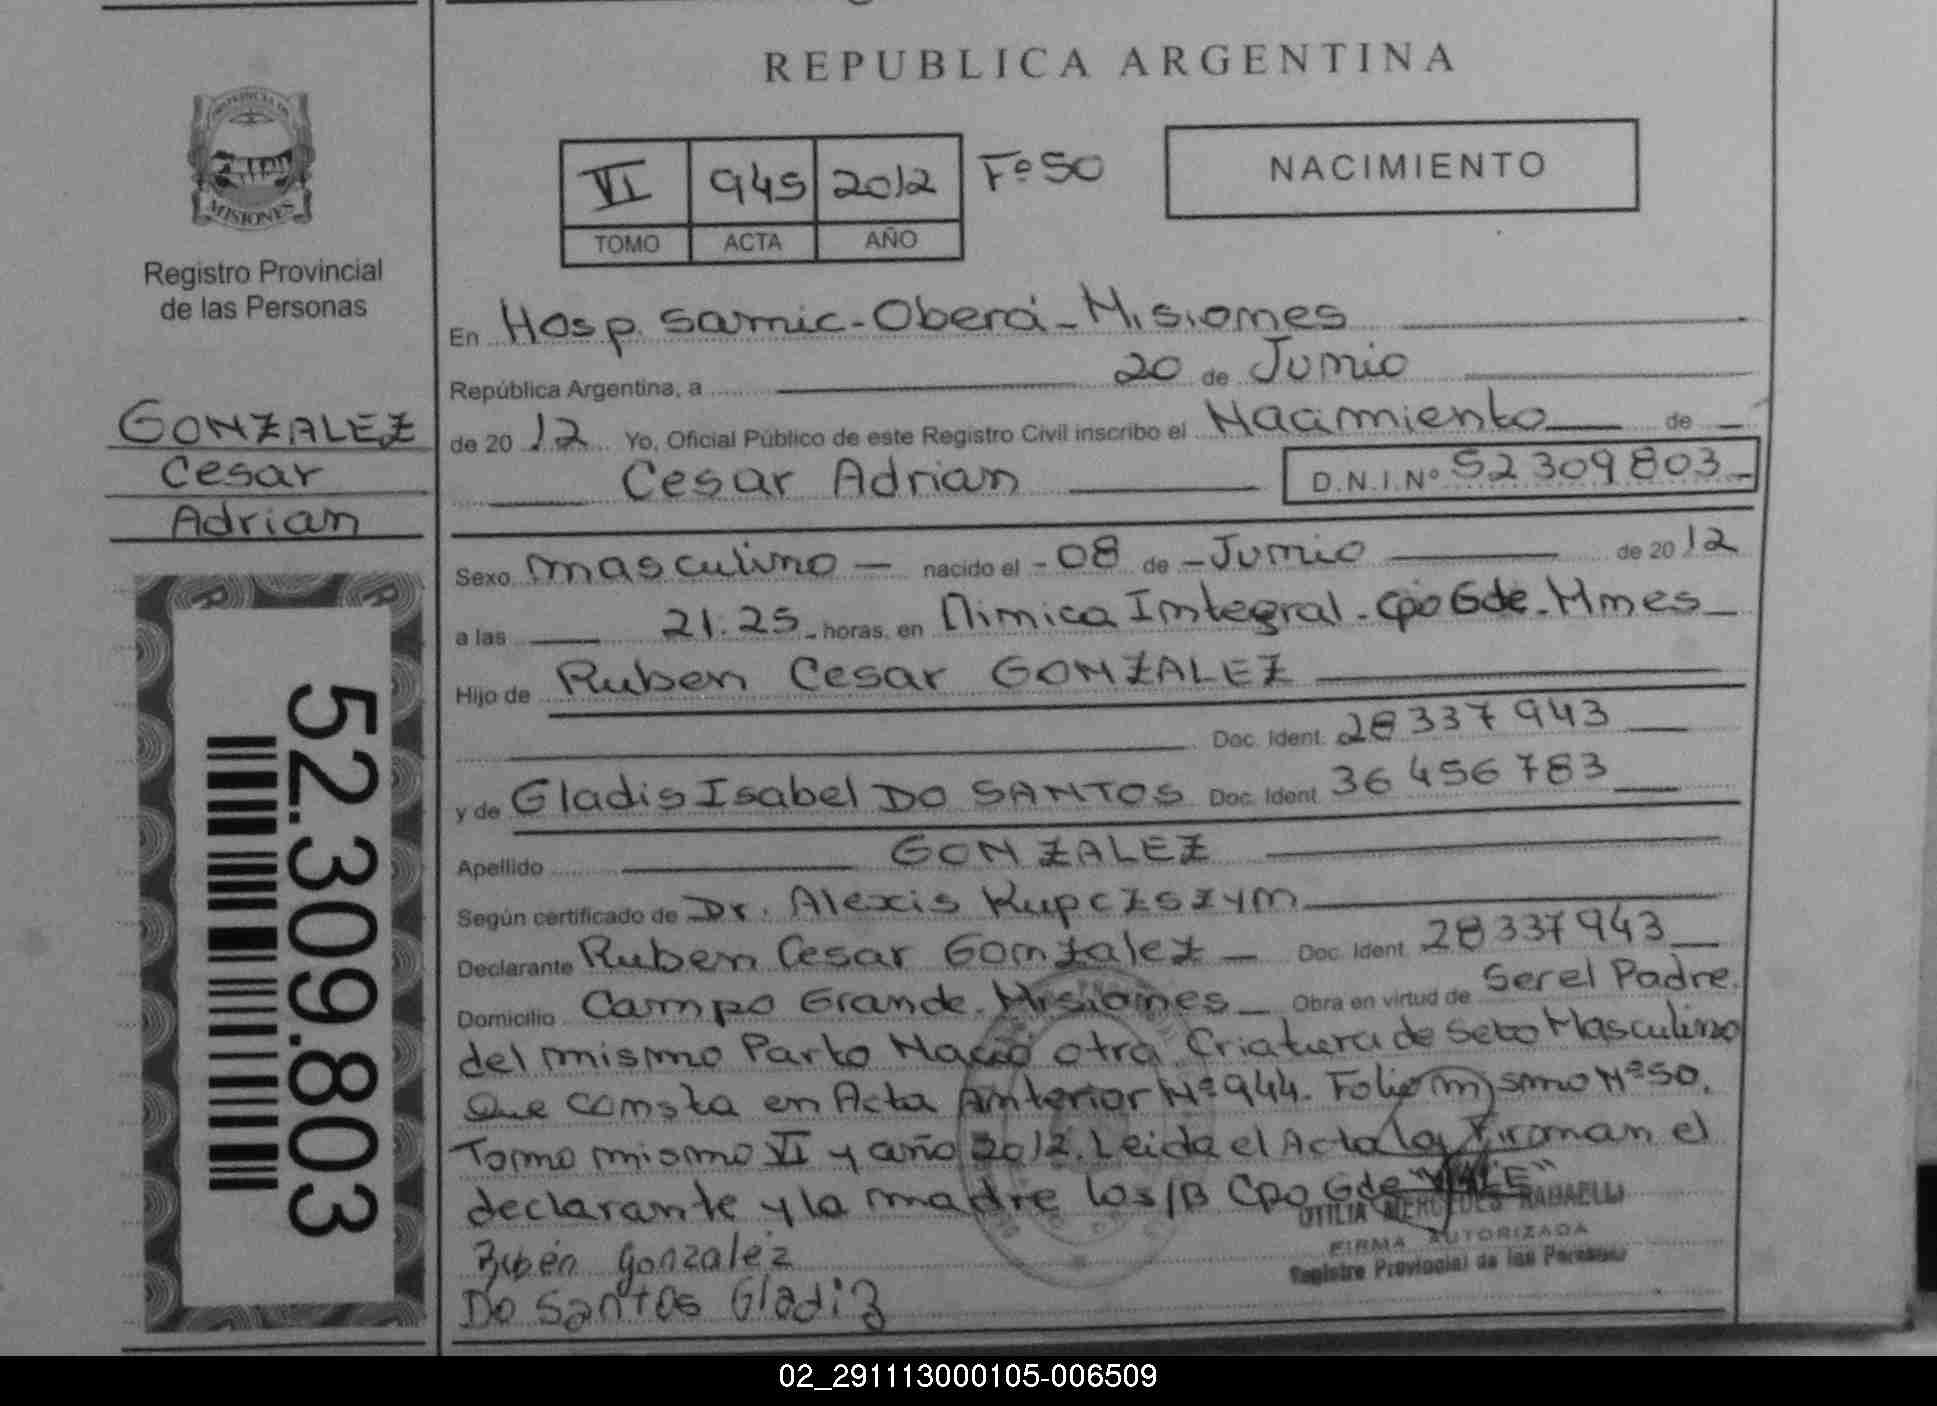 REPUBLICA ARGENTINA
PROVINCIA DE
MISIONES
Registro Provincial
de las Personas
VI 945 2012 Fº 50
TOMO ACTA AÑO
NACIMIENTO
En Hosp. Samic - Oberá - Misiones
República Argentina, a 20 de Junio
de 20 12 Yo, Oficial Público de este Registro Civil inscribo el Nacimiento de
Cesar Adrian D.N.I.Nº 52309803
GONZALEZ
Cesar
Adrian
52.309.803
Sexo masculino nacido el 08 de Junio de 20 12
a las 21.25 horas, en Integral - Cpo Gde - Mnes
Hijo de Ruben Cesar GONZALEZ
Doc. Ident. 28337943
y de Gladis Isabel DO SANTOS Doc. Ident. 36456783
Apellido GONZALEZ
Según certificado de Dr. Alexis Kupczszyn
Declarante Ruben Cesar Gonzalez Doc. Ident. 28337943
Domicilio Campo Grande - Misiones Obra en virtud de Ser el Padre.
del mismo Parto Nació otra Criatura de Sexo Masculino
Que consta en Acta Anterior Nº 944. Folio mismo Nº 50.
Tomo mismo VI y año 2012. Leida el Acta la Firman el
declarante y la madre los/B Cpo Gde "VALE"
Rubén Gonzalez
Do Santos Gladiz
OTILIA MERCEDES RADAELLI
FIRMA AUTORIZADA
Registro Provincial de las Personas
02_291113000105-006509